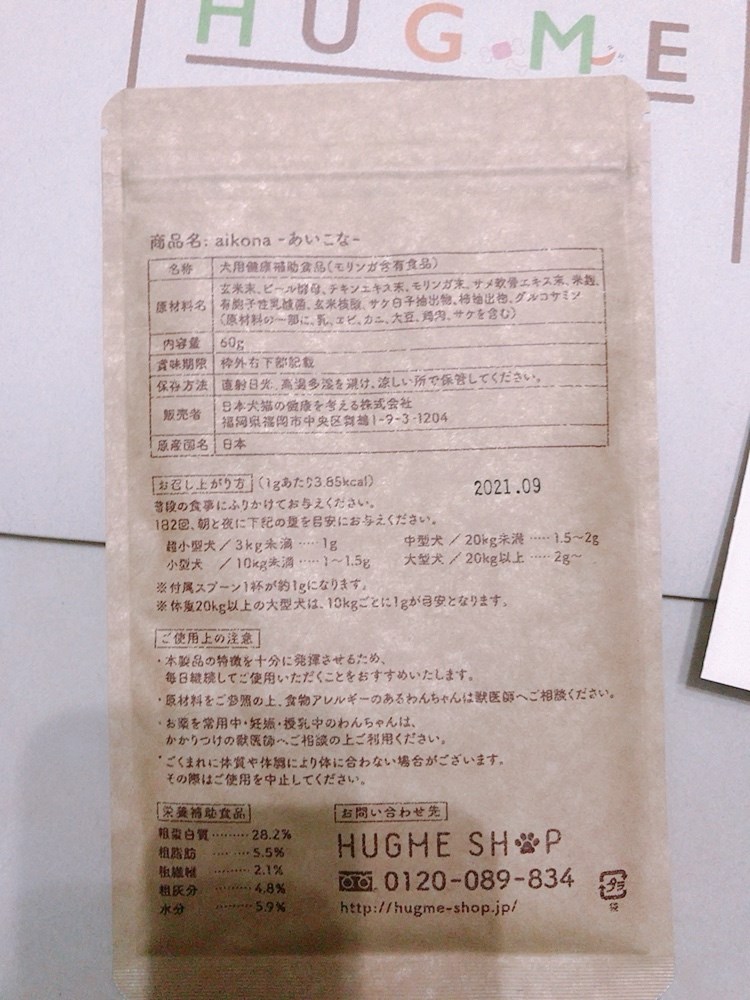 HUGME
商品名: aikona -あいこな-
名称 犬用健康補助食品(モリンガ含有食品)
原材料名 玄米末、ビール酵母、チキンエキス末、モリンガ末、サメ軟骨エキス末、米麹、
有胞子性乳酸菌、玄米核酸、サケ白子抽出物、柿抽出物、グルコサミン
(原材料の一部に、乳、エビ、カニ、大豆、鶏肉、サケを含む)
内容量 60g
賞味期限 枠外右下部記載
保存方法 直射日光、高温多湿を避け、涼しい所で保管してください。
販売者 日本犬猫の健康を考える株式会社
福岡県福岡市中央区舞鶴1-9-3-1204
原産国名 日本
お召し上がり方 (1gあたり3.85kcal)
2021.09
普段の食事にふりかけてお与えください。
1日2回、朝と夜に下記の量を目安にお与えください。
超小型犬/3kg未満……1g 中型犬/20kg未満……1.5~2g
小型犬/10kg未満……1~1.5g 大型犬/20kg以上……2g~
※付属スプーン1杯が約1gになります。
※体重20kg以上の大型犬は、10kgごとに1gが目安となります。
ご使用上の注意
・本製品の特徴を十分に発揮させるため、
毎日継続してご使用いただくことをおすすめいたします。
・原材料をご参照の上、食物アレルギーのあるわんちゃんは獣医師へご相談ください。
・お薬を常用中・妊娠・授乳中のわんちゃんは、
かかりつけの獣医師へご相談の上ご利用ください。
・ごくまれに体質や体調により体に合わない場合がございます。
その際はご使用を中止してください。
栄養補助食品
粗蛋白質………28.2%
粗脂肪………5.5%
粗繊維………2.1%
粗灰分………4.8%
水分………5.9%
お問い合わせ先
HUGME SHOP
0120-089-834
http://hugme-shop.jp/
プラ
袋